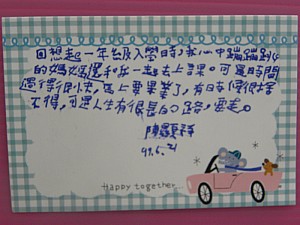 回想起一年級入學時,我心中蹦蹦跳
的媽媽還和我一起去上課。可是時間
過得很快,馬上要畢業了,有時候很捨
不得,可是人生有很長的路要走。
陳
99.6.21
Happy together...